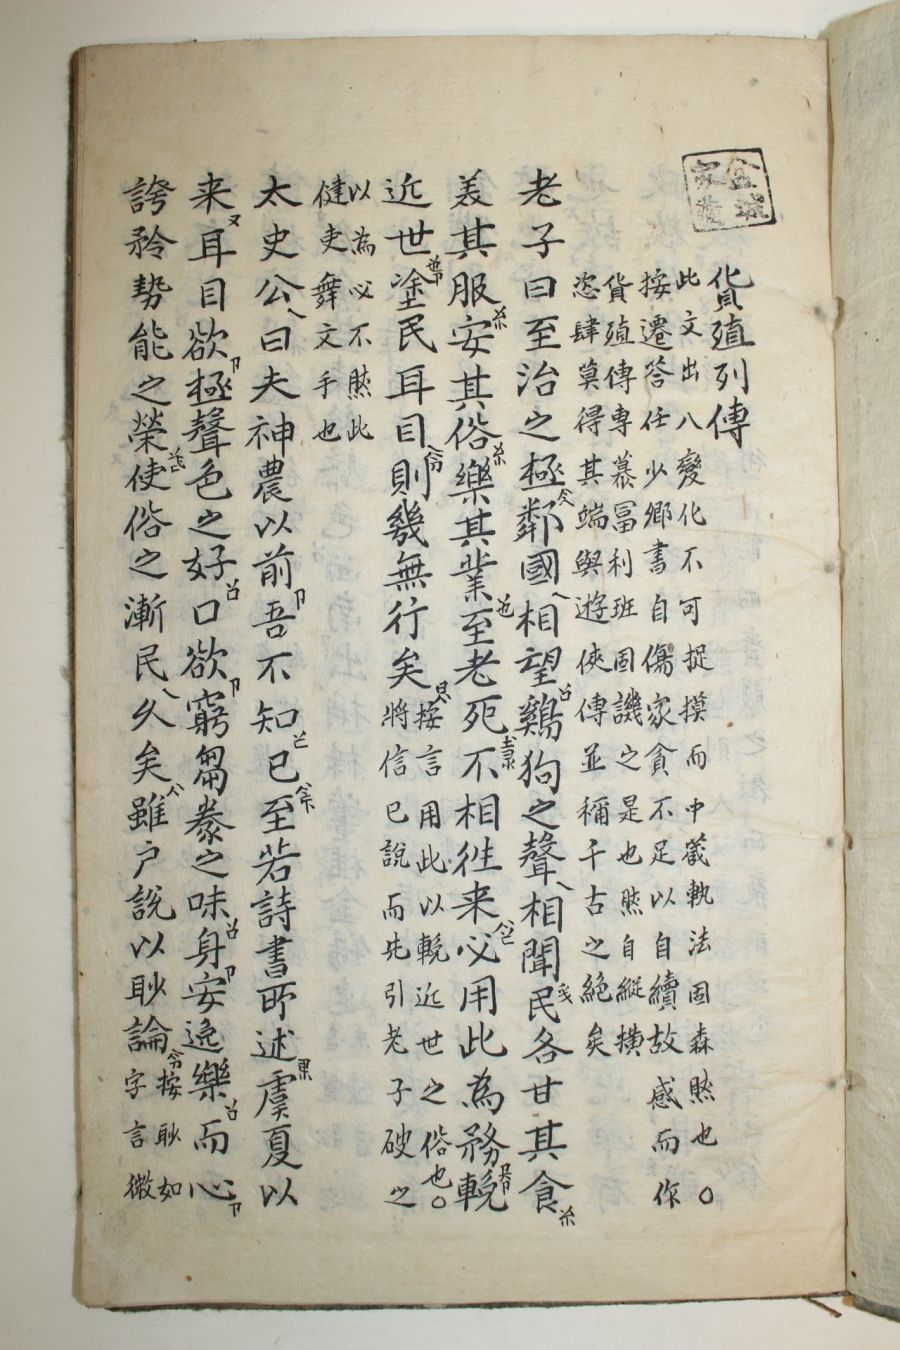 金城家藏
貨殖列傳
此文出八變化不可捉摸而中藏執法固森然也○
按遷答任少卿書自傷家貧不足以自續故感而作
貨殖傳專慕冨利班固譏之是也然自縱橫
恣肆莫得其端與遊俠傳並稱千古之絶矣
老子曰至治之極鄰國相望鷄狗之聲相聞民各甘其食
美其服安其俗樂其業至老死不相徃来必用此為務輓
近世塗民耳目則幾無行矣
按言用此以輓近世之俗也○
將信已說而先引老子破之
以為必不然此
健吏舞文手也
太史公曰夫神農以前吾不知已至若詩書所述虞夏以
来耳目欲極聲色之好口欲窮芻豢之味身安逸樂而心
誇矜勢能之榮使俗之漸民久矣雖户說以眇論
按眇如
字言微